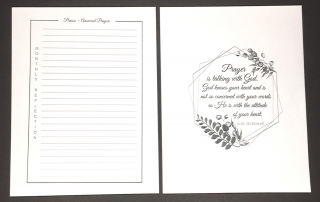 Praise - Answered Prayer
MONTHLY REFLECTION
Prayer
is talking with God.
God knows your heart and is
not so concerned with your words
as He is with the attitude
of your heart.